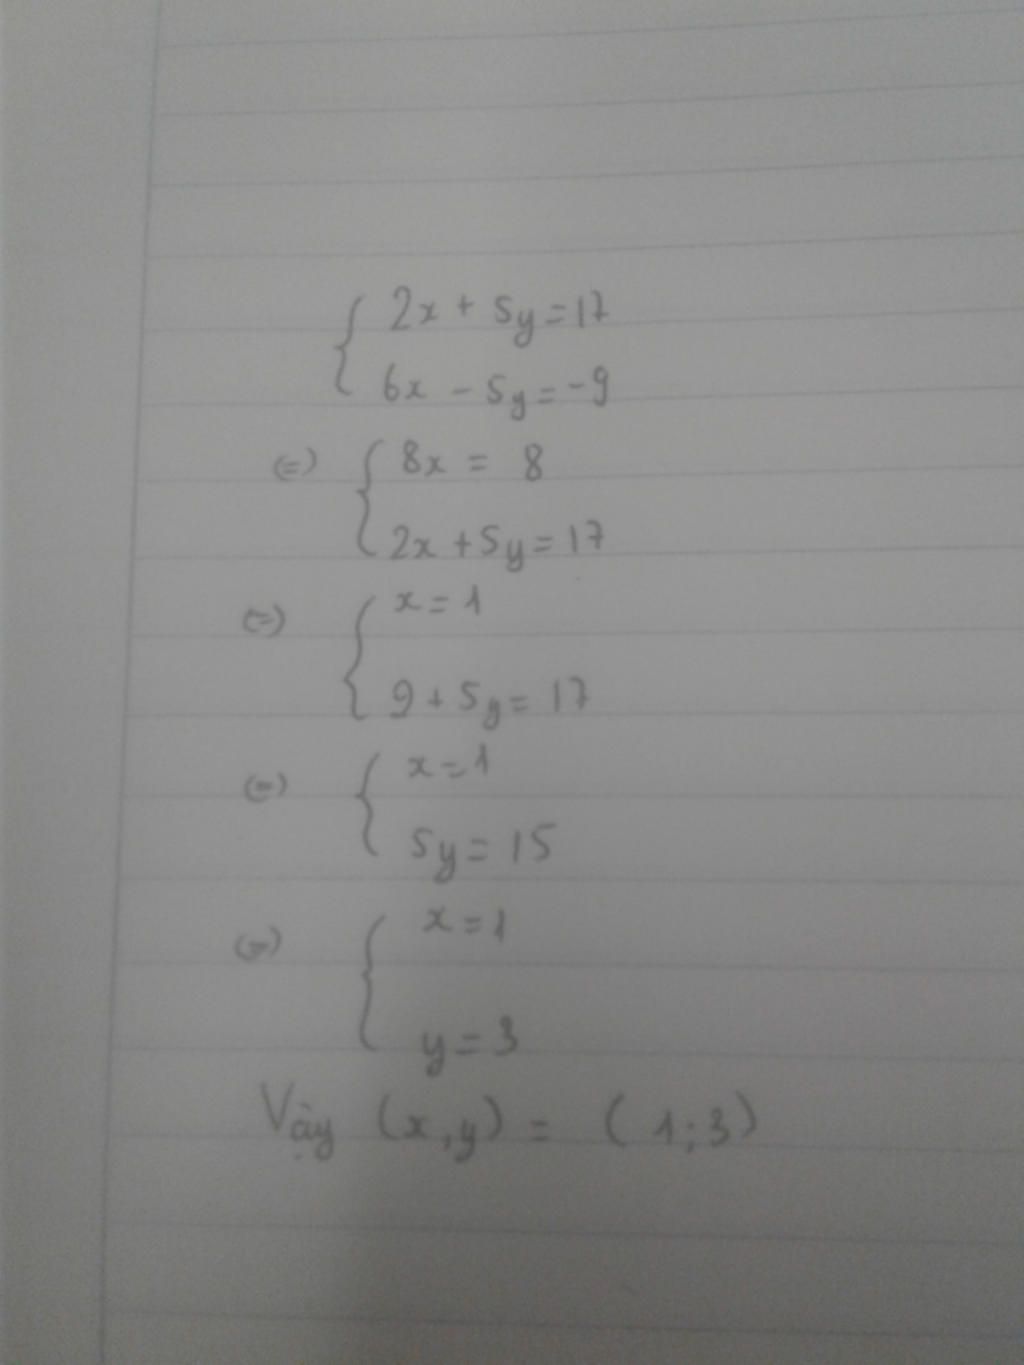 { 2x + 5y = 17
6x - 5y = -9
(=) { 8x = 8
2x + 5y = 17
(=) { x = 1
9 + 5y = 17
(=) { x = 1
5y = 15
(=) { x = 1
y = 3
Vậy (x,y) = (1;3)